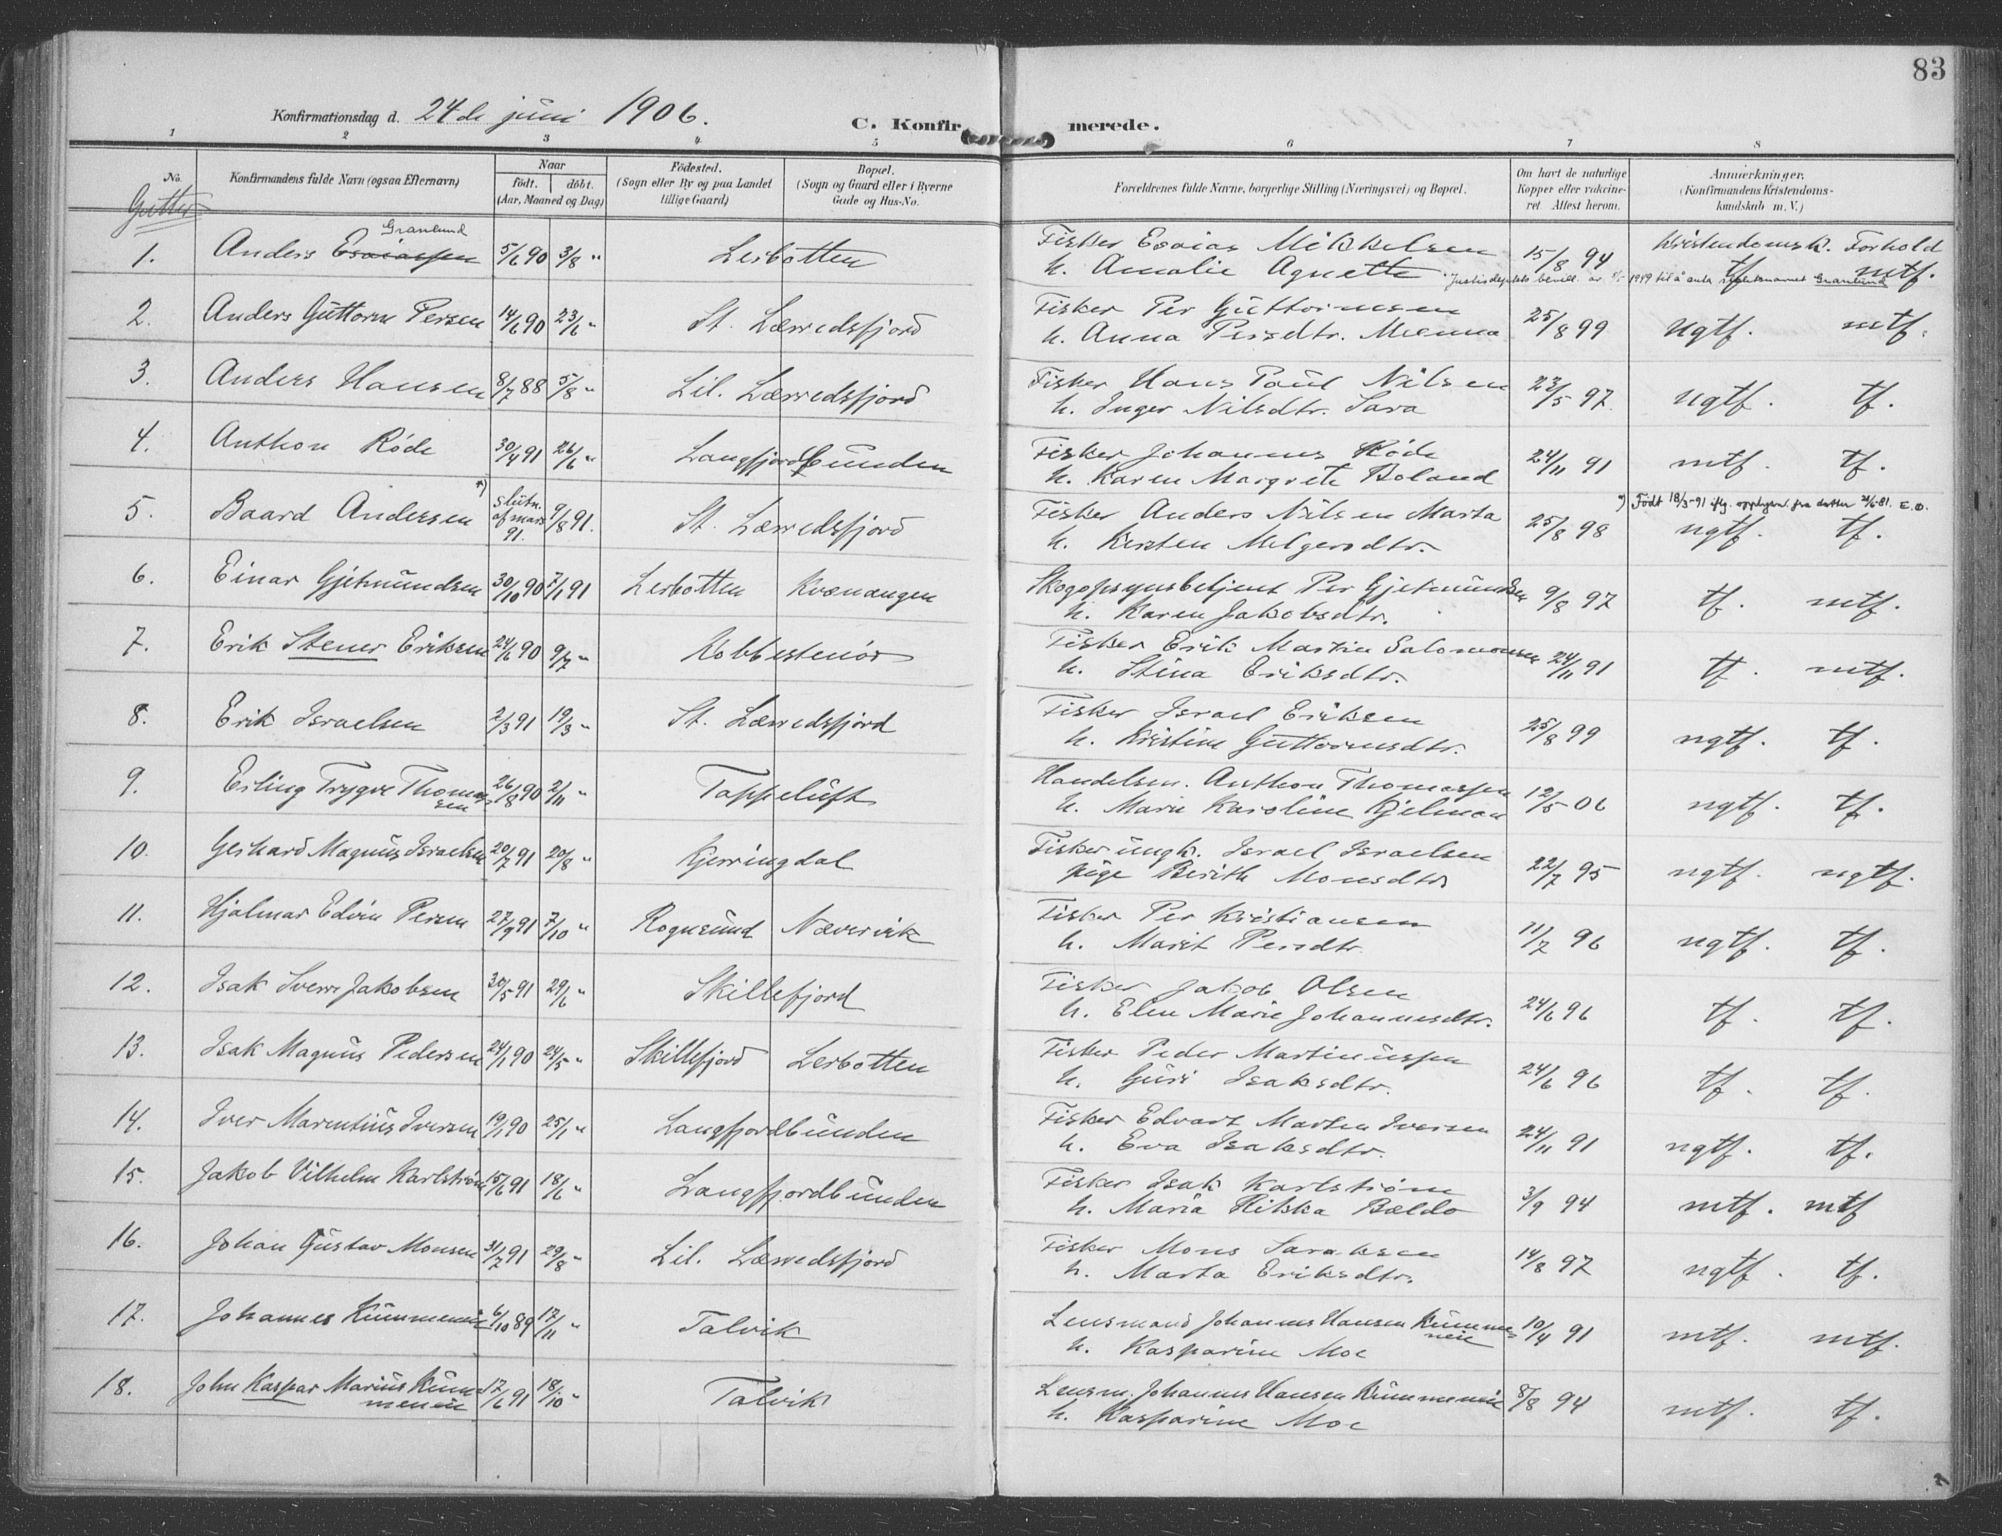 83
Konfirmationsdag d. 24de juni 1906.
C. Konfirmerede.
1 2 3 4 5 6 7 8
No.
Konfirmandens fulde Navn (ogsaa Efternavn)
Naar
født. døbt.
(Aar, Maaned og Dag)
Fødested.
(Sogn eller By og paa Landet
tillige Gaard)
Bopæl.
(Sogn og Gaard eller i Byerne
Gade og Hus-No.
Forældrenes fulde Navne, borgerlige Stilling (Næringsvei) og Bopæl.
Om havt de naturlige
Kopper eller vakcine-
ret. Attest herom.
Anmærkninger.
(Konfirmandens Kristendoms-
kundskab m. V.)
Gutter
Kristendomsk. Forhold
Granlund
1. Anders Esaiassen 5/6 90 3/8 " Lerbotten Fisker Esaias Mikkelsen 15/8 94 tf. mtf.
h. Amalie Agnette
2. Anders Guttorm Persen 14/6 90 23/6 " St. Lærredsfjord Fisker Per Guttormsen 25/8 99 ngtf. mtf.
h. Anna Persdtr. Mienna
3. Anders Hansen 8/7 88 5/8 " Lil. Lærredsfjord Fisker Hans Paul Nilsen 23/5 97 ngtf. tf.
h. Inger Nilsdtr. Sara
4. Anthon Røde 30/4 91 26/6 " Langfjordbunden Fisker Johannes Røde 24/11 91 mtf. tf.
h. Karen Margrete Boland
*) Født 18/3-91 iflg. opplysn. fra datter 24/6-81. E.O.
5. Baard Andersen *) slutn. af mars 91. 9/8 91. St. Lærredsfjord Fisker Anders Nilsen Marta 25/8 98 ngtf. tf.
h. Kirsten Melgersdtr.
6. Einar Gjetmundsen 30/10 90 7/1 91 Lerbotten Kvænangen Skogopsynsbetjent Per Gjetmundsen 9/8 97 tf. mtf.
h. Karen Jakobsdtr.
7. Erik Stener Eriksen 24/6 90 9/7 " Kobbestenør Fisker Erik Martin Salomonsen 24/11 91 tf. mtf.
h. Stina Eriksdtr.
8. Erik Israelsen 2/3 91 19/3 " St. Lærredsfjord Fisker Israel Eriksen 25/8 99 ngtf. tf.
h. Kristine Guttormsdtr.
9. Erling Trygve Thomassen 26/8 90 2/11 " Tappeluft Handelsm. Anthon Thomassen 12/5 06 ngtf. tf.
h. Marie Karoline Kjelman
10. Gerhard Magnus Israelsen 20/7 91 20/8 " Kjerringdal Fisker ungk. Israel Israelsen 22/7 95 ngtf. ngtf.
pige Berith Monsdtr
11. Hjalmar Edvin Persen 27/9 91 7/10 " Rognsund Nævervik Fisker Per Kristiansen 11/7 96 ngtf. tf.
h. Marit Persdtr.
12. Isak Sverre Jakobsen 30/5 91 29/6 " Skillefjord Fisker Jakob Olsen 24/6 96 tf. tf.
h. Elen Marie Johannesdtr.
13. Isak Magnus Pedersen 24/1 90 24/5 " Skillefjord Lerbotten Fisker Peder Martinussen 24/6 96 tf. tf.
h. Guri Isaksdtr.
14. Iver Marentius Iversen 19/1 90 25/1 " Langfjordbunden Fisker Edvart Marten Iversen 24/11 91 ngtf. tf.
h. Eva Isaksdtr.
15. Jakob Vilhelm Karlstrøm 15/6 91 18/6 " Langfjordbunden Fisker Isak Karlstrøm 3/9 94 mtf. mtf
h. Maria Hilska Bældo
16. Johan Gustav Monsen 31/7 91 29/8 " Lil. Lærredsfjord Fisker Mons Saraksen 14/8 97 ngtf. tf.
h. Marta Eriksdtr.
17. Johannes Kummeneie 6/10 89 17/11 " Talvik Lensmand Johannes Hansen Kummeneie 10/4 91 mtf. mtf.
h. Kasparine Moe
18. John Kaspar Marius Kummeneie 12/6 91 18/10 " Talvik Lensm. Johannes Hansen Kummeneie 8/8 94 mtf. tf.
h. Kasparine Moe